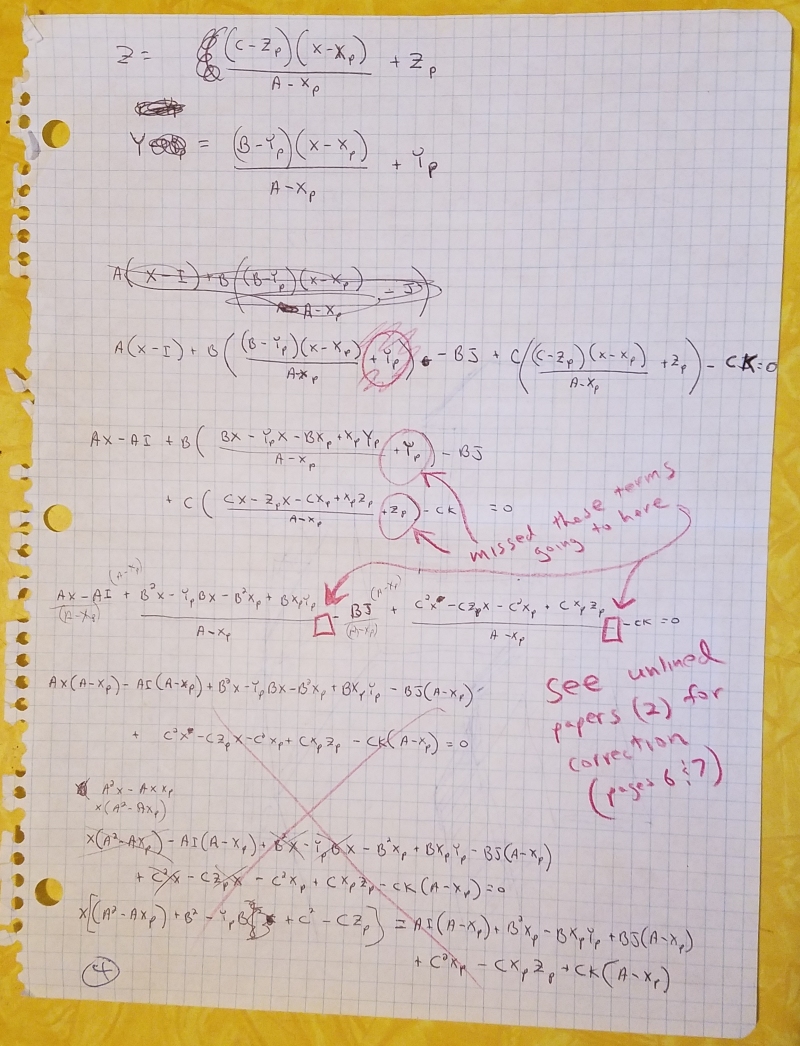 Z = (C-Z_p)(X-X_p)/(A-X_p) + Z_p
Y = (B-Y_p)(X-X_p)/(A-X_p) + Y_p
A(X-I) + B((B-Y_p)(X-X_p)/(A-X_p) - J)
A(X-I) + B((B-Y_p)(X-X_p)/(A-X_p) + Y_p) - BJ + C((C-Z_p)(X-X_p)/(A-X_p) + Z_p) - CK = 0
AX - AI + B(BX - Y_pX - BX_p + X_pY_p/(A-X_p) + Y_p) - BJ
+ C(CX - Z_pX - CX_p + X_pZ_p/(A-X_p) + Z_p) - CK = 0
missed these terms
going to here
(A-X_p) (A-X_p)
AX - AI/(A-X_p) + B²X - Y_pBX - B²X_p + BX_pY_p/(A-X_p) □ - BJ/(A-X_p) + C²X - CZ_pX - C²X_p + CX_pZ_p/(A-X_p) □ - CK = 0
AX(A-X_p) - AI(A-X_p) + B²X - Y_pBX - B²X_p + BX_pY_p - BJ(A-X_p)
+ C²X - CZ_pX - C²X_p + CX_pZ_p - CK(A-X_p) = 0
see unlined
papers (2) for
correction
(pages 6 & 7)
A²X - AXX_p
X(A²-AX_p)
X(A²-AX_p) - AI(A-X_p) + B²X - Y_pBX - B²X_p + BX_pY_p - BJ(A-X_p)
+ C²X - CZ_pX - C²X_p + CX_pZ_p - CK(A-X_p) = 0
X[(A²-AX_p) + B² - Y_pB + C² - CZ_p] = AI(A-X_p) + B²X_p - BX_pY_p + BJ(A-X_p)
+ C²X_p - CX_pZ_p + CK(A-X_p)
4